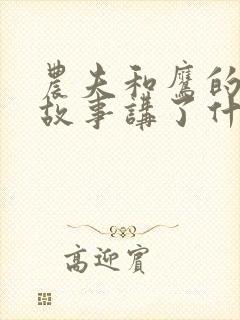 農夫和鷹的
故事講了什
高迎賓